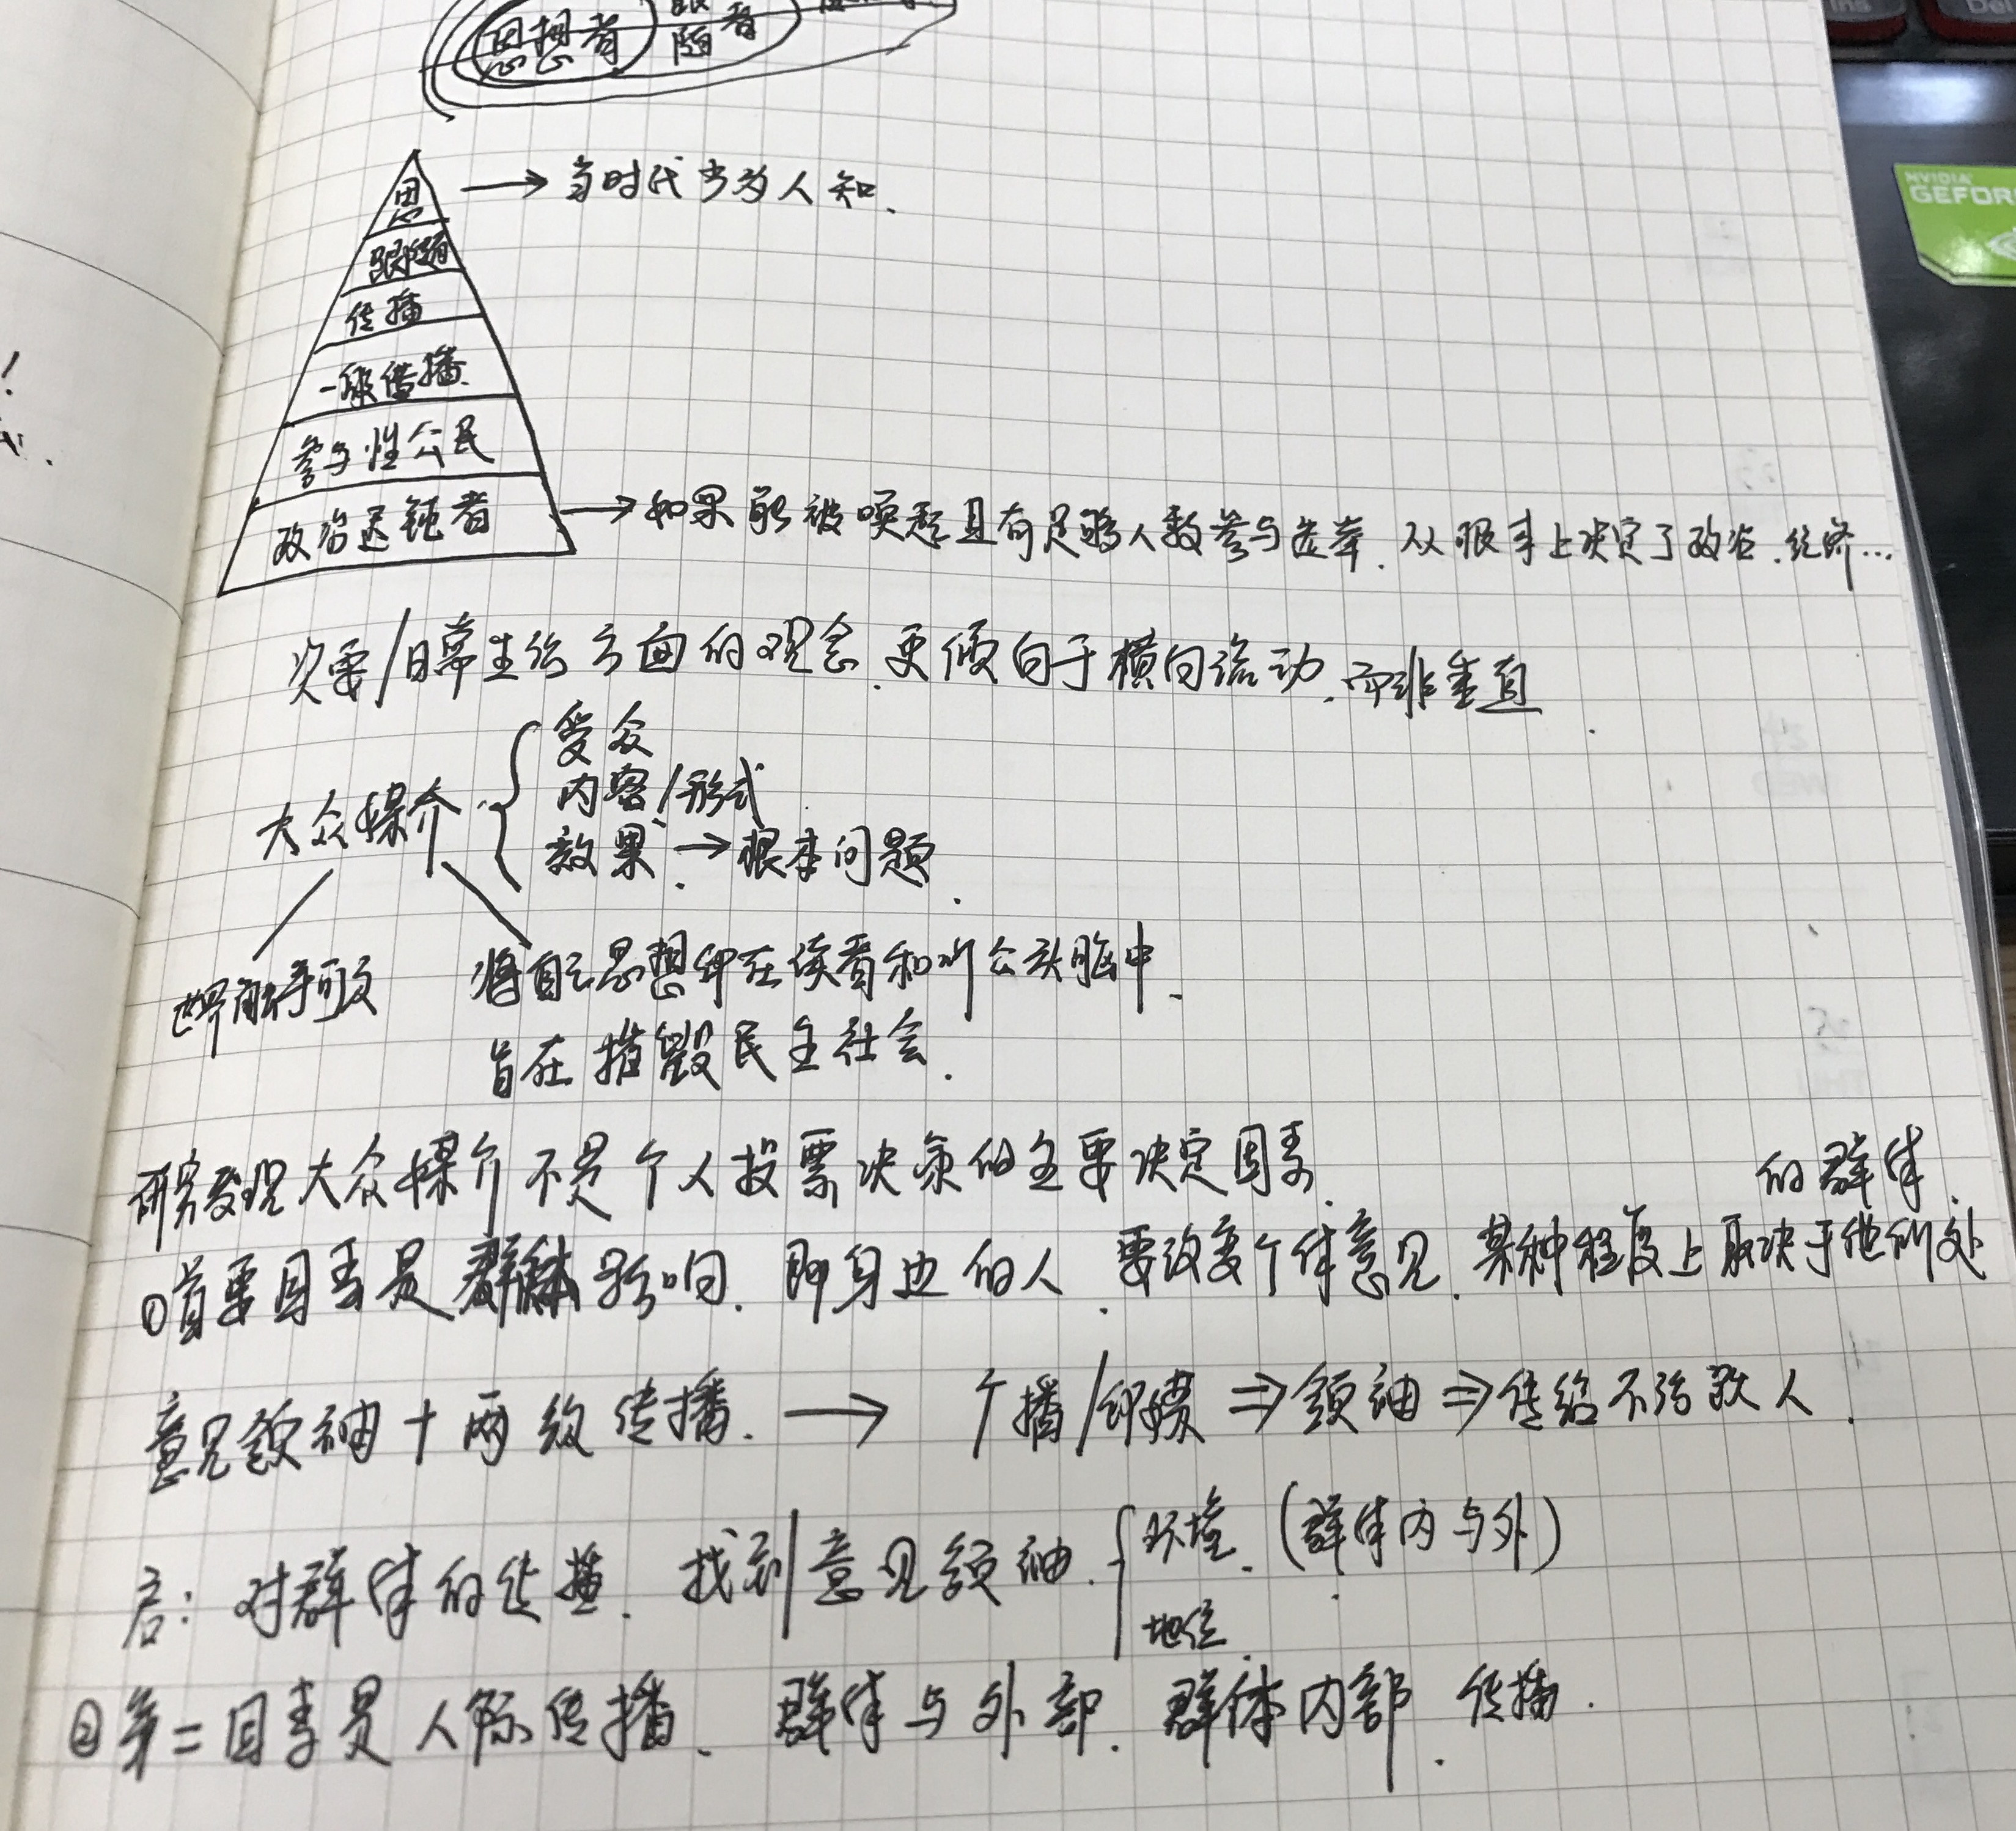 思想者 跟随者
思 → 当时代少为人知.
跟随者
传播
一般传播
参与性公民
政治迟钝者 → 如果能被唤起且有足够人数参与选举. 从根本上决定了政治.经济…
次要/日常生活方面的观念.更倾向于横向流动.而非垂直.
受众
内容/形式
大众媒介
效果. → 根本问题.
将自己思想印在读者和听众头脑中.
旨在摧毁民主社会.
研究发现大众媒介不是个人投票决策的主要决定因素.
①首要因素是群体影响. 即身边的人. 要改变个体意见. 某种程度上取决于他所处的群体.
意见领袖+两级传播. → 广播/印刷 ⇒ 领袖 ⇒ 传给不活跃人.
启: 对群体的传播. 找到意见领袖.
环境. (群体内与外).
地位.
②第二因素是人际传播、群体与外部. 群体内部. 传播.
NVIDIA
GEFOR
Ins
Del
WED
THU